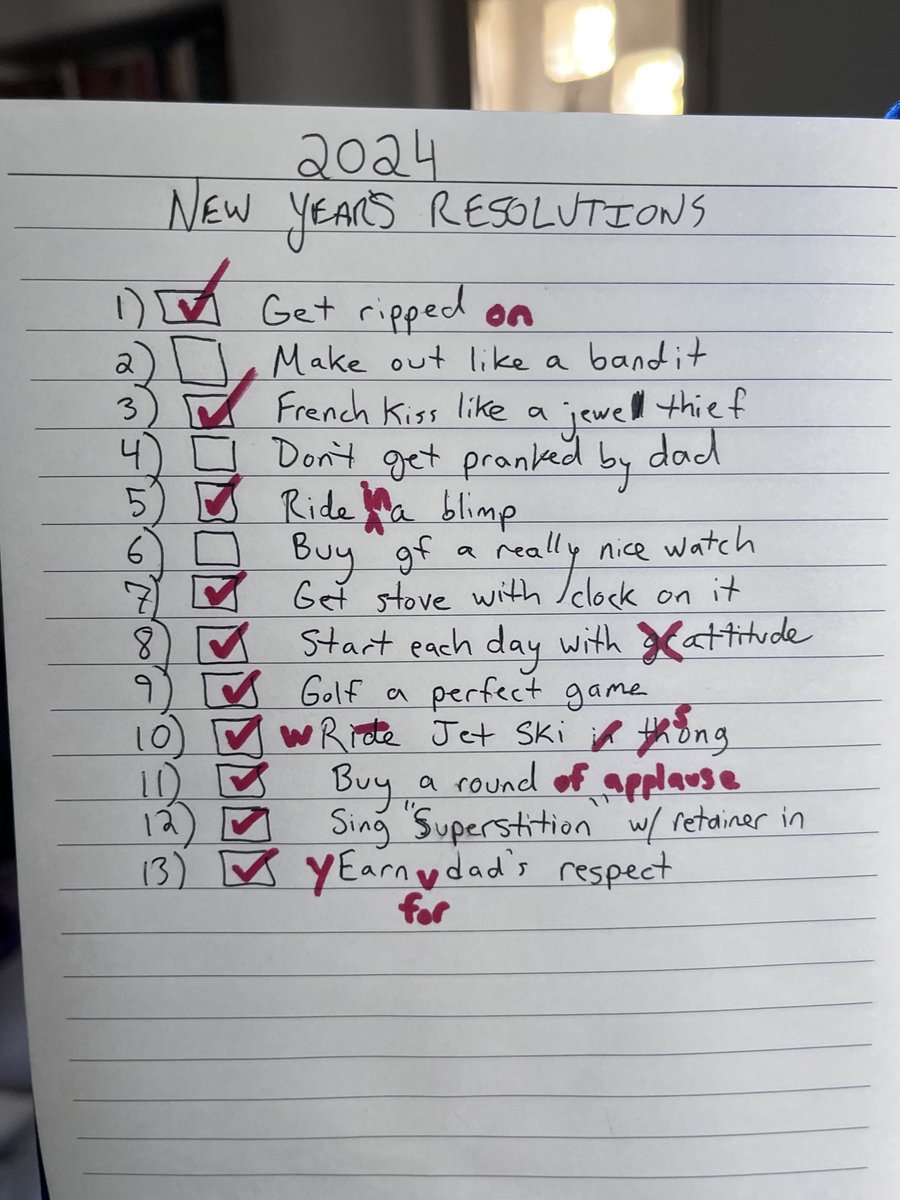 2024
NEW YEAR'S RESOLUTIONS
1) Get ripped on
2) Make out like a bandit
3) French kiss like a jewel thief
4) Don't get pranked by dad
5) Ride in a blimp
6) Buy gf a really nice watch
7) Get stove with clock on it
8) Start each day with grattitude
9) Golf a perfect game
10) wRite Jet Ski in thsong
11) Buy a round of applause
12) Sing "Superstition" w/ retainer in
13) yEarn for dad's respect